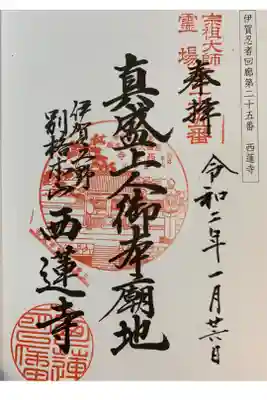 伊賀忍者回廊第二十五番 西蓮寺
宗祖大師
霊場
番
奉拝
令和二年一月廿六日
真盛上人御本廟地
伊賀上野
別格本山 西蓮寺